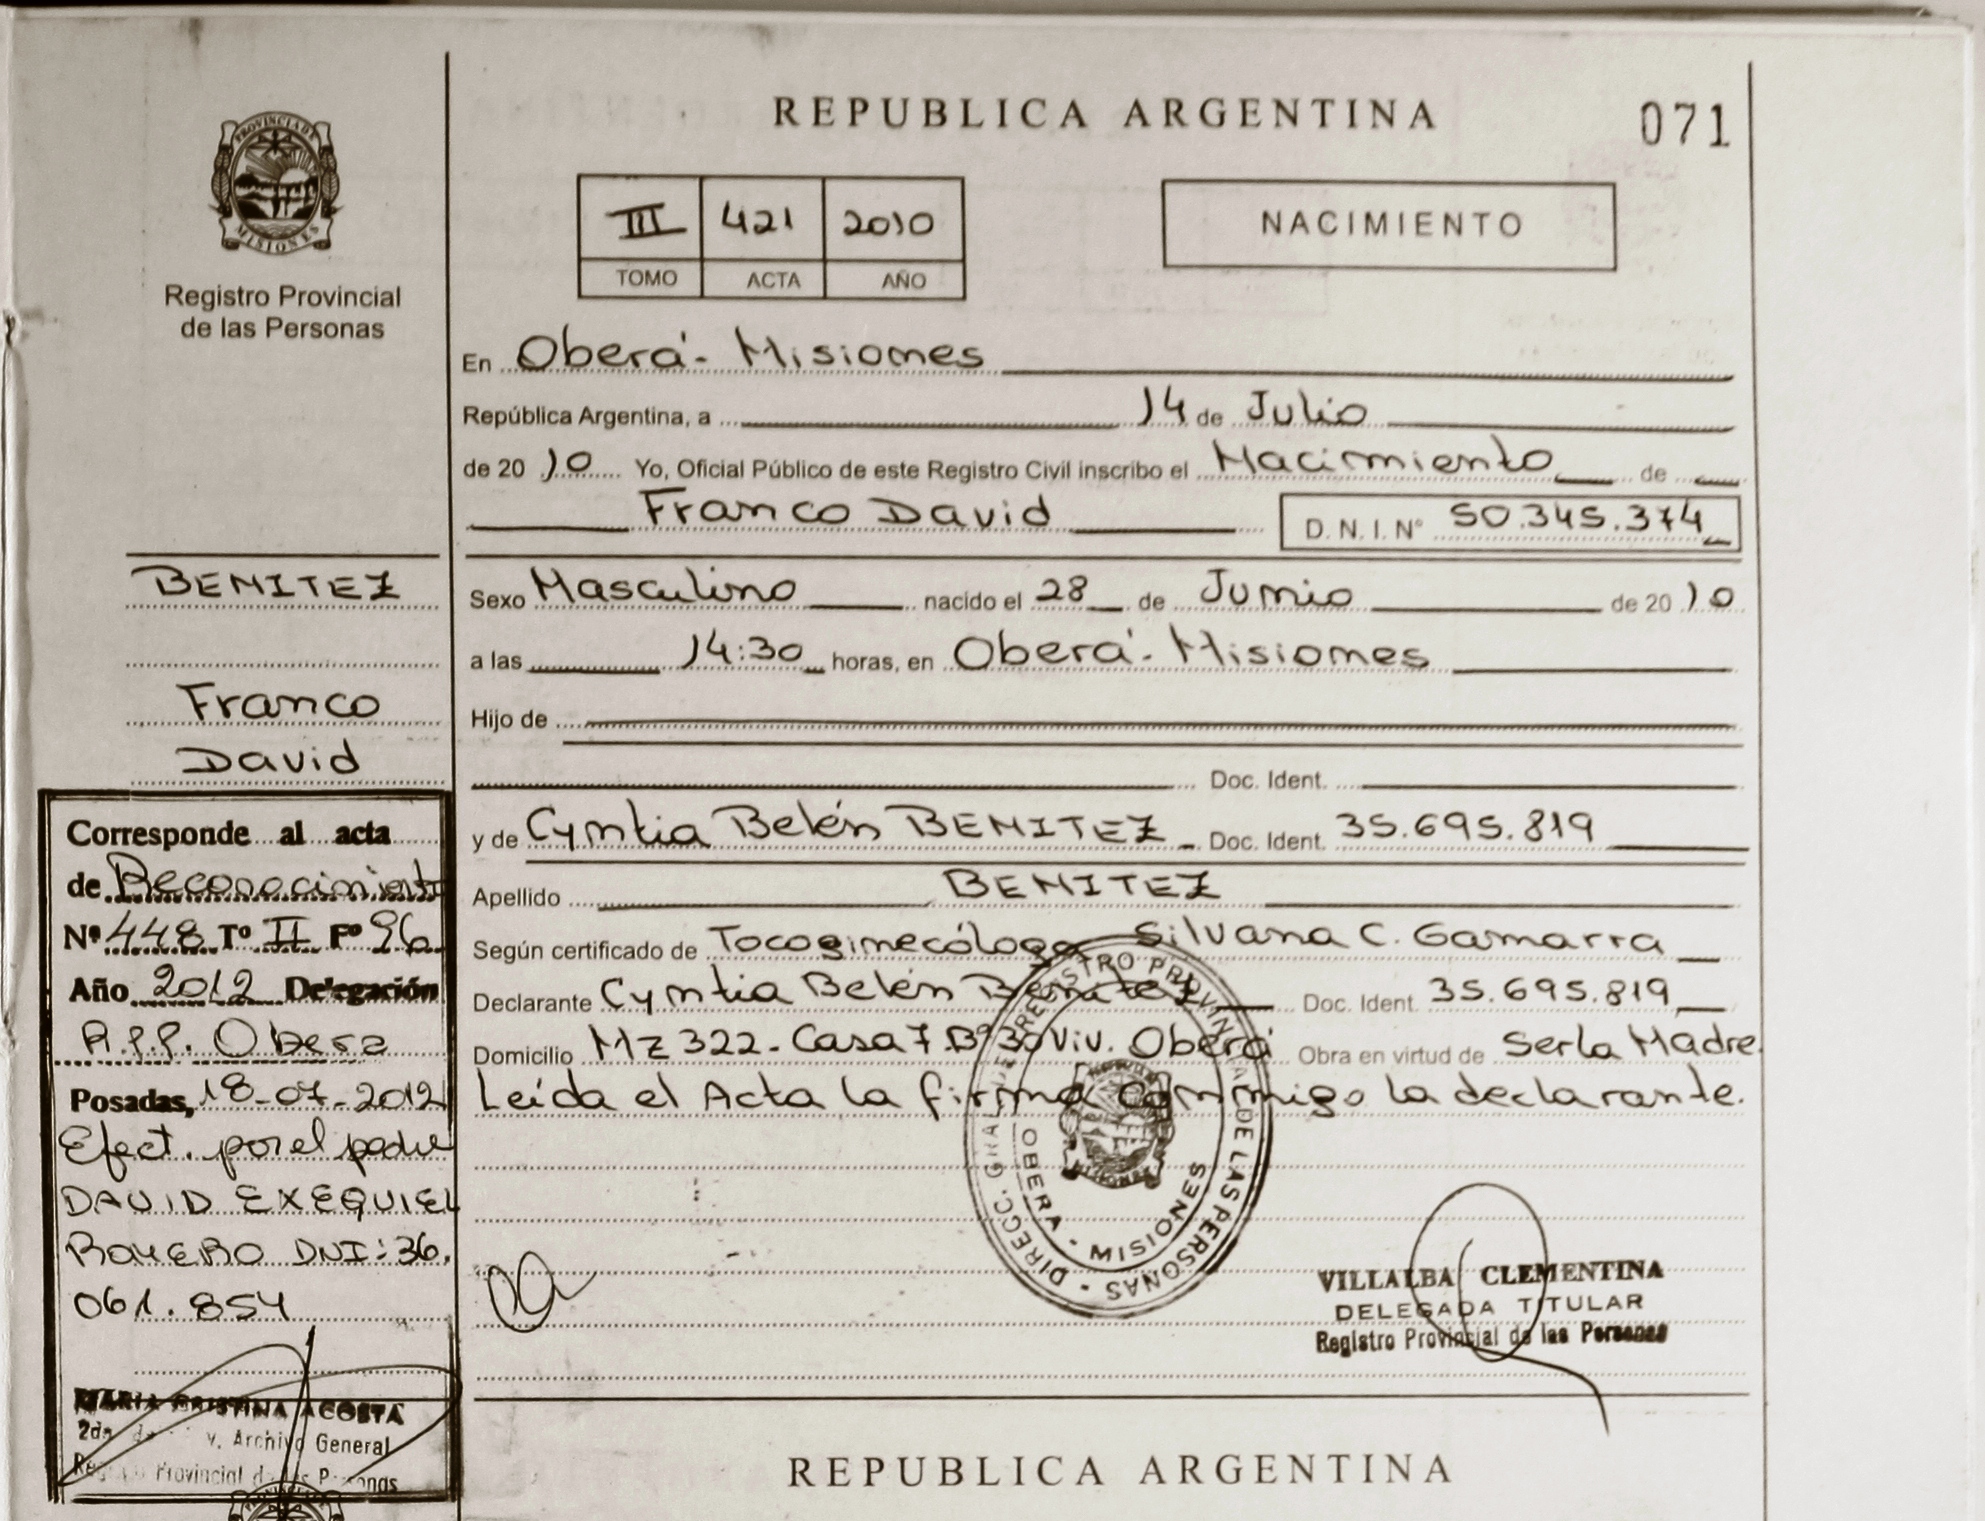 PROVINCIA DE
MISIONES
Registro Provincial
de las Personas
REPUBLICA ARGENTINA
071
III 421 2010
TOMO ACTA AÑO
NACIMIENTO
En Oberá- Misiones
República Argentina, a 14 de Julio
de 20 10 Yo, Oficial Público de este Registro Civil inscribo el Nacimiento de
Franco David
D. N. I. N° 50.345.374
BENITEZ
Franco
David
Sexo Masculino nacido el 28 de Junio de 20 10
a las 14:30 horas, en Oberá- Misiones
Hijo de
Doc. Ident.
y de Cyntia Belén BENITEZ Doc. Ident. 35.695.819
Apellido BENITEZ
Según certificado de Tocoginecóloga Silvana C. Gamarra
Declarante Cyntia Belén Benitez Doc. Ident. 35.695.819
Domicilio Mz 322- Casa 7 B° 30 Viv. Oberá Obra en virtud de Ser la Madre.
Leída el Acta la firma conmigo la declarante.
Corresponde al acta
de Reconocimiento
Nº 448 Tº II Fº 96
Año 2012 Delegación
R.P.P. Obera
Posadas, 18-07-2012
Efect. por el padre
DAVID EXEQUIEL
ROMERO DNI: 36.
061.854
MARIA CRISTINA ACOSTA
Archivo General
Provincial de las Personas
DIRECC. GRAL. DE REGISTRO PROVINCIAL DE LAS PERSONAS
OBERA - MISIONES
MISIONES
VILLALBA CLEMENTINA
DELEGADA TITULAR
Registro Provincial de las Personas
REPUBLICA ARGENTINA